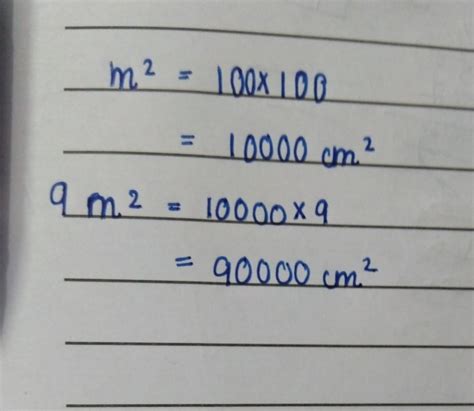 m² = 100×100
= 10000 cm²
9 m² = 10000×9
= 90000 cm²